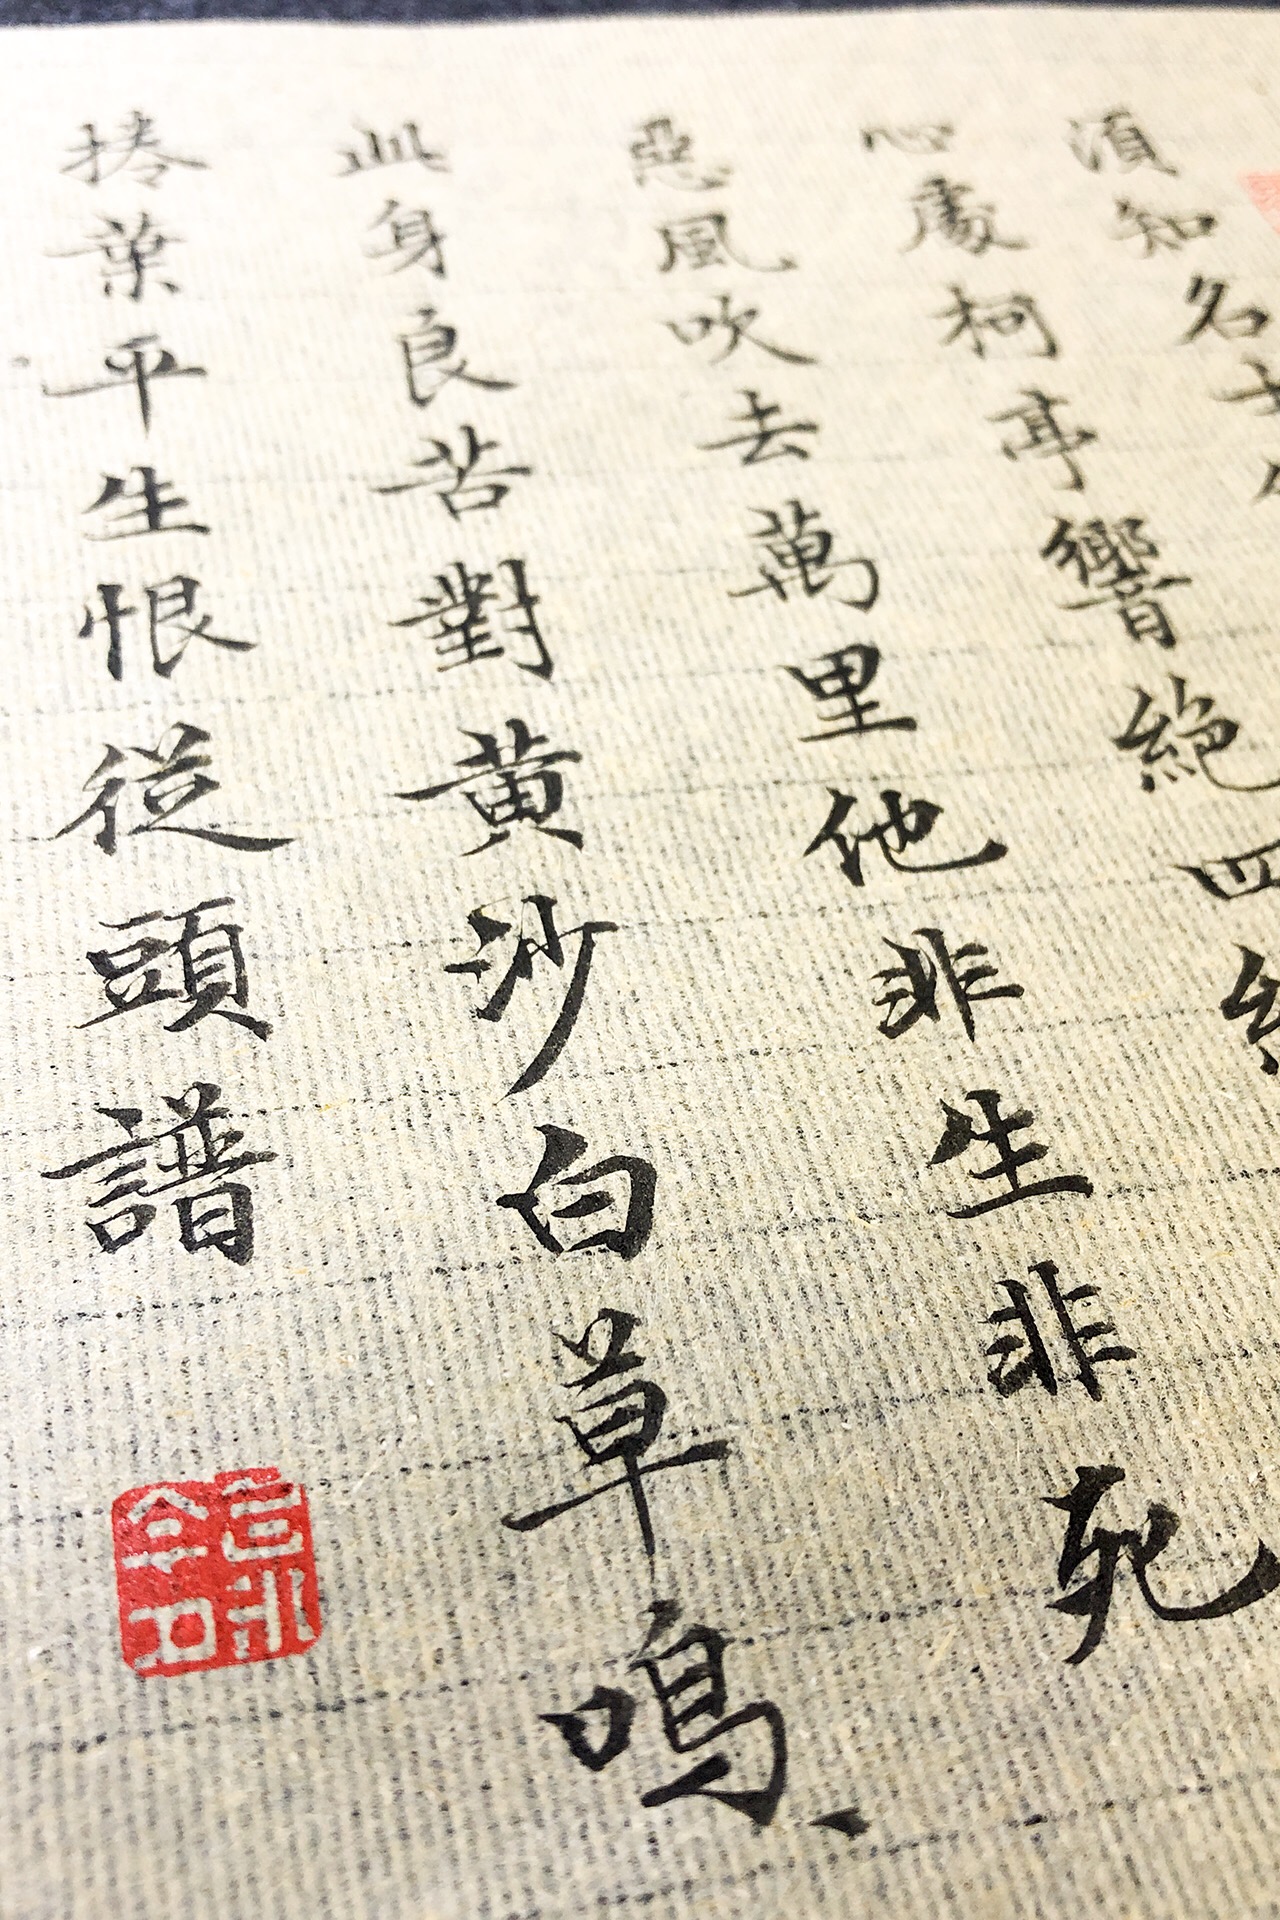 須知名士
心處柯亭響絕四絃
惡風吹去萬里他非生非死
此身良苦對黃沙白草鳴、
捲葉平生恨從頭譜